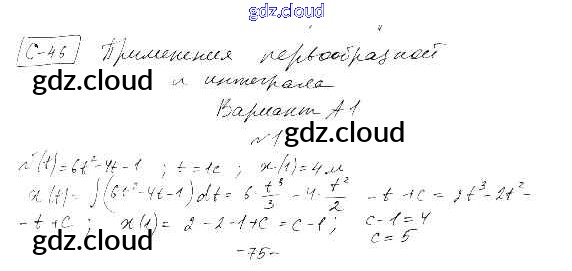 gdz.cloud
С-46 Применения первообразной
gdz.cloud gdz.cloud
и интеграла
Вариант А1
№1 gdz.cloud
v(t)=6t²-4t-1 ; t=1c ; x(1)=4м
x(t)=∫(6t²-4t-1)dt=6·t³/3-4·t²/2-t+c=2t³-2t²-
-t+C; x(1)=2-2-1+C=C-1; c-1=4
c=5
gdz.cloud gdz.cloud
-75-